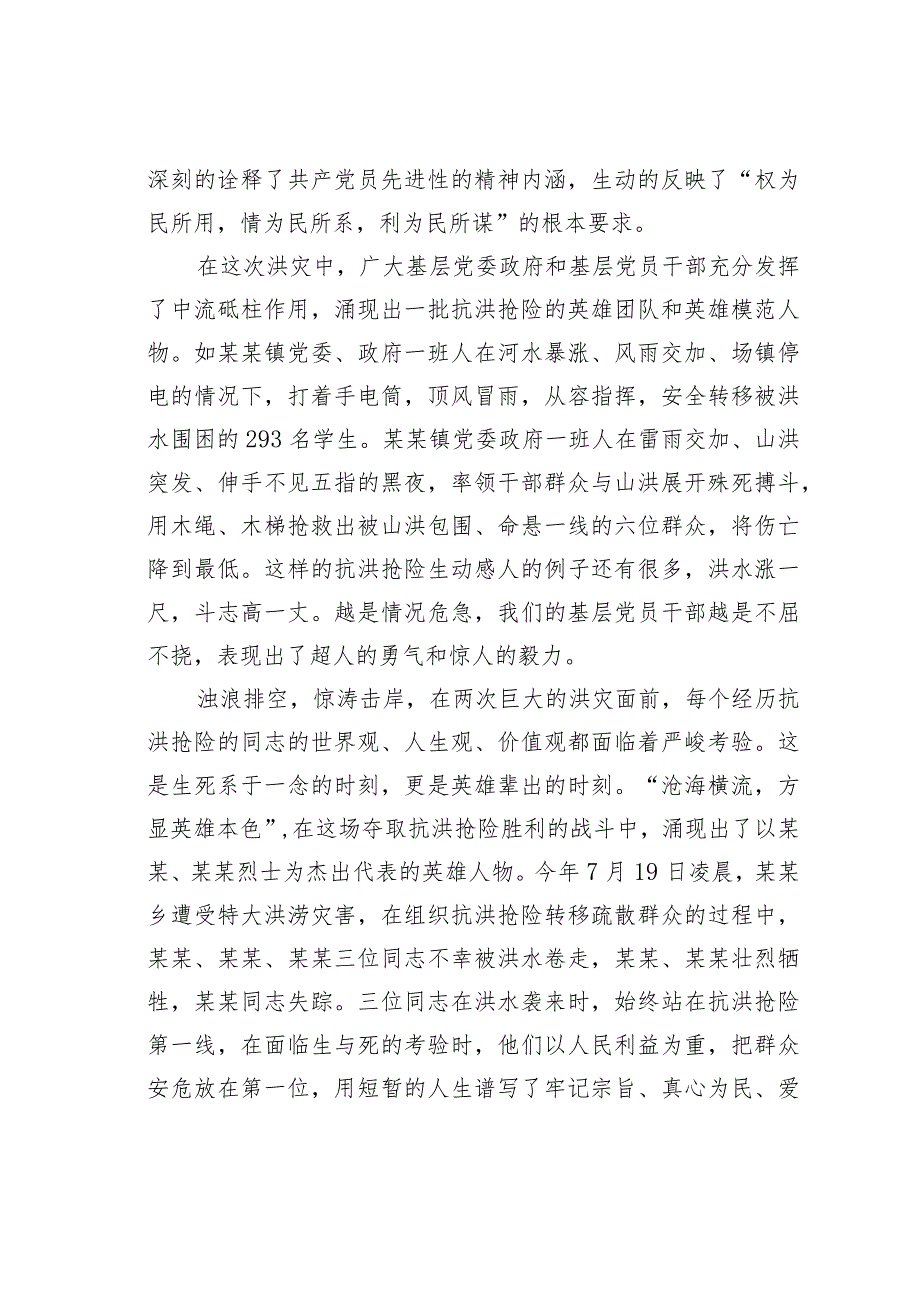 深刻的诠释了共产党员先进性的精神内涵，生动的反映了“权为
民所用，情为民所系，利为民所谋”的根本要求。
在这次洪灾中，广大基层党委政府和基层党员干部充分发挥
了中流砥柱作用，涌现出一批抗洪抢险的英雄团队和英雄模范人
物。如某某镇党委、政府一班人在河水暴涨、风雨交加、场镇停
电的情况下，打着手电筒，顶风冒雨，从容指挥，安全转移被洪
水围困的 293 名学生。某某镇党委政府一班人在雷雨交加、山洪
突发、伸手不见五指的黑夜，率领干部群众与山洪展开殊死搏斗，
用木绳、木梯抢救出被山洪包围、命悬一线的六位群众，将伤亡
降到最低。这样的抗洪抢险生动感人的例子还有很多，洪水涨一
尺，斗志高一丈。越是情况危急，我们的基层党员干部越是不屈
不挠，表现出了超人的勇气和惊人的毅力。
浊浪排空，惊涛击岸，在两次巨大的洪灾面前，每个经历抗
洪抢险的同志的世界观、人生观、价值观都面临着严峻考验。这
是生死系于一念的时刻，更是英雄辈出的时刻。“沧海横流，方
显英雄本色”,在这场夺取抗洪抢险胜利的战斗中，涌现出了以某
某、某某烈士为杰出代表的英雄人物。今年 7 月 19 日凌晨，某某
乡遭受特大洪涝灾害，在组织抗洪抢险转移疏散群众的过程中，
某某、某某、某某三位同志不幸被洪水卷走，某某、某某壮烈牺
牲，某某同志失踪。三位同志在洪水袭来时，始终站在抗洪抢险
第一线，在面临生与死的考验时，他们以人民利益为重，把群众
安危放在第一位，用短暂的人生谱写了牢记宗旨、真心为民、爱